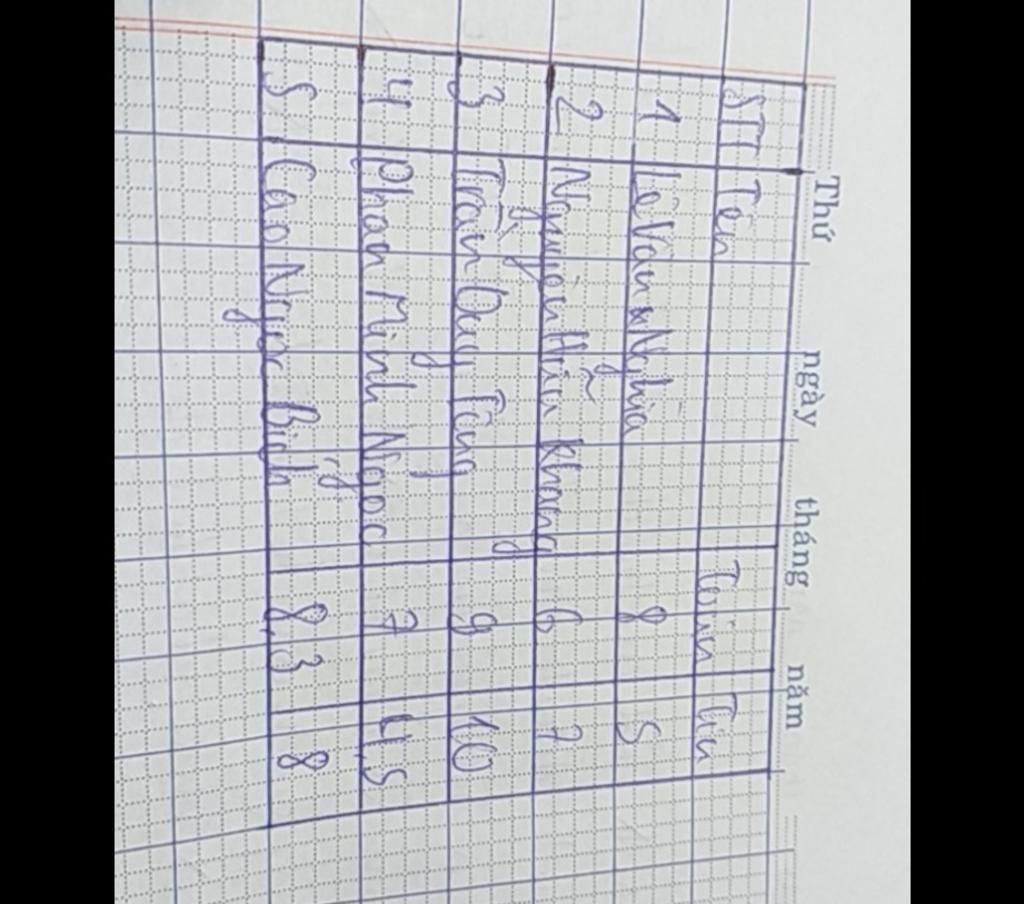 Thứ ngày tháng năm
STT Tên Toán Tin
1 Lê Văn Nghĩa 8 5
2 Nguyễn Hữu Khang 6 7
3 Trần Duy Tông 9 10
4 Phan Minh Ngọc 7 4,5
5 Cao Ngọc Bích 8,3 8